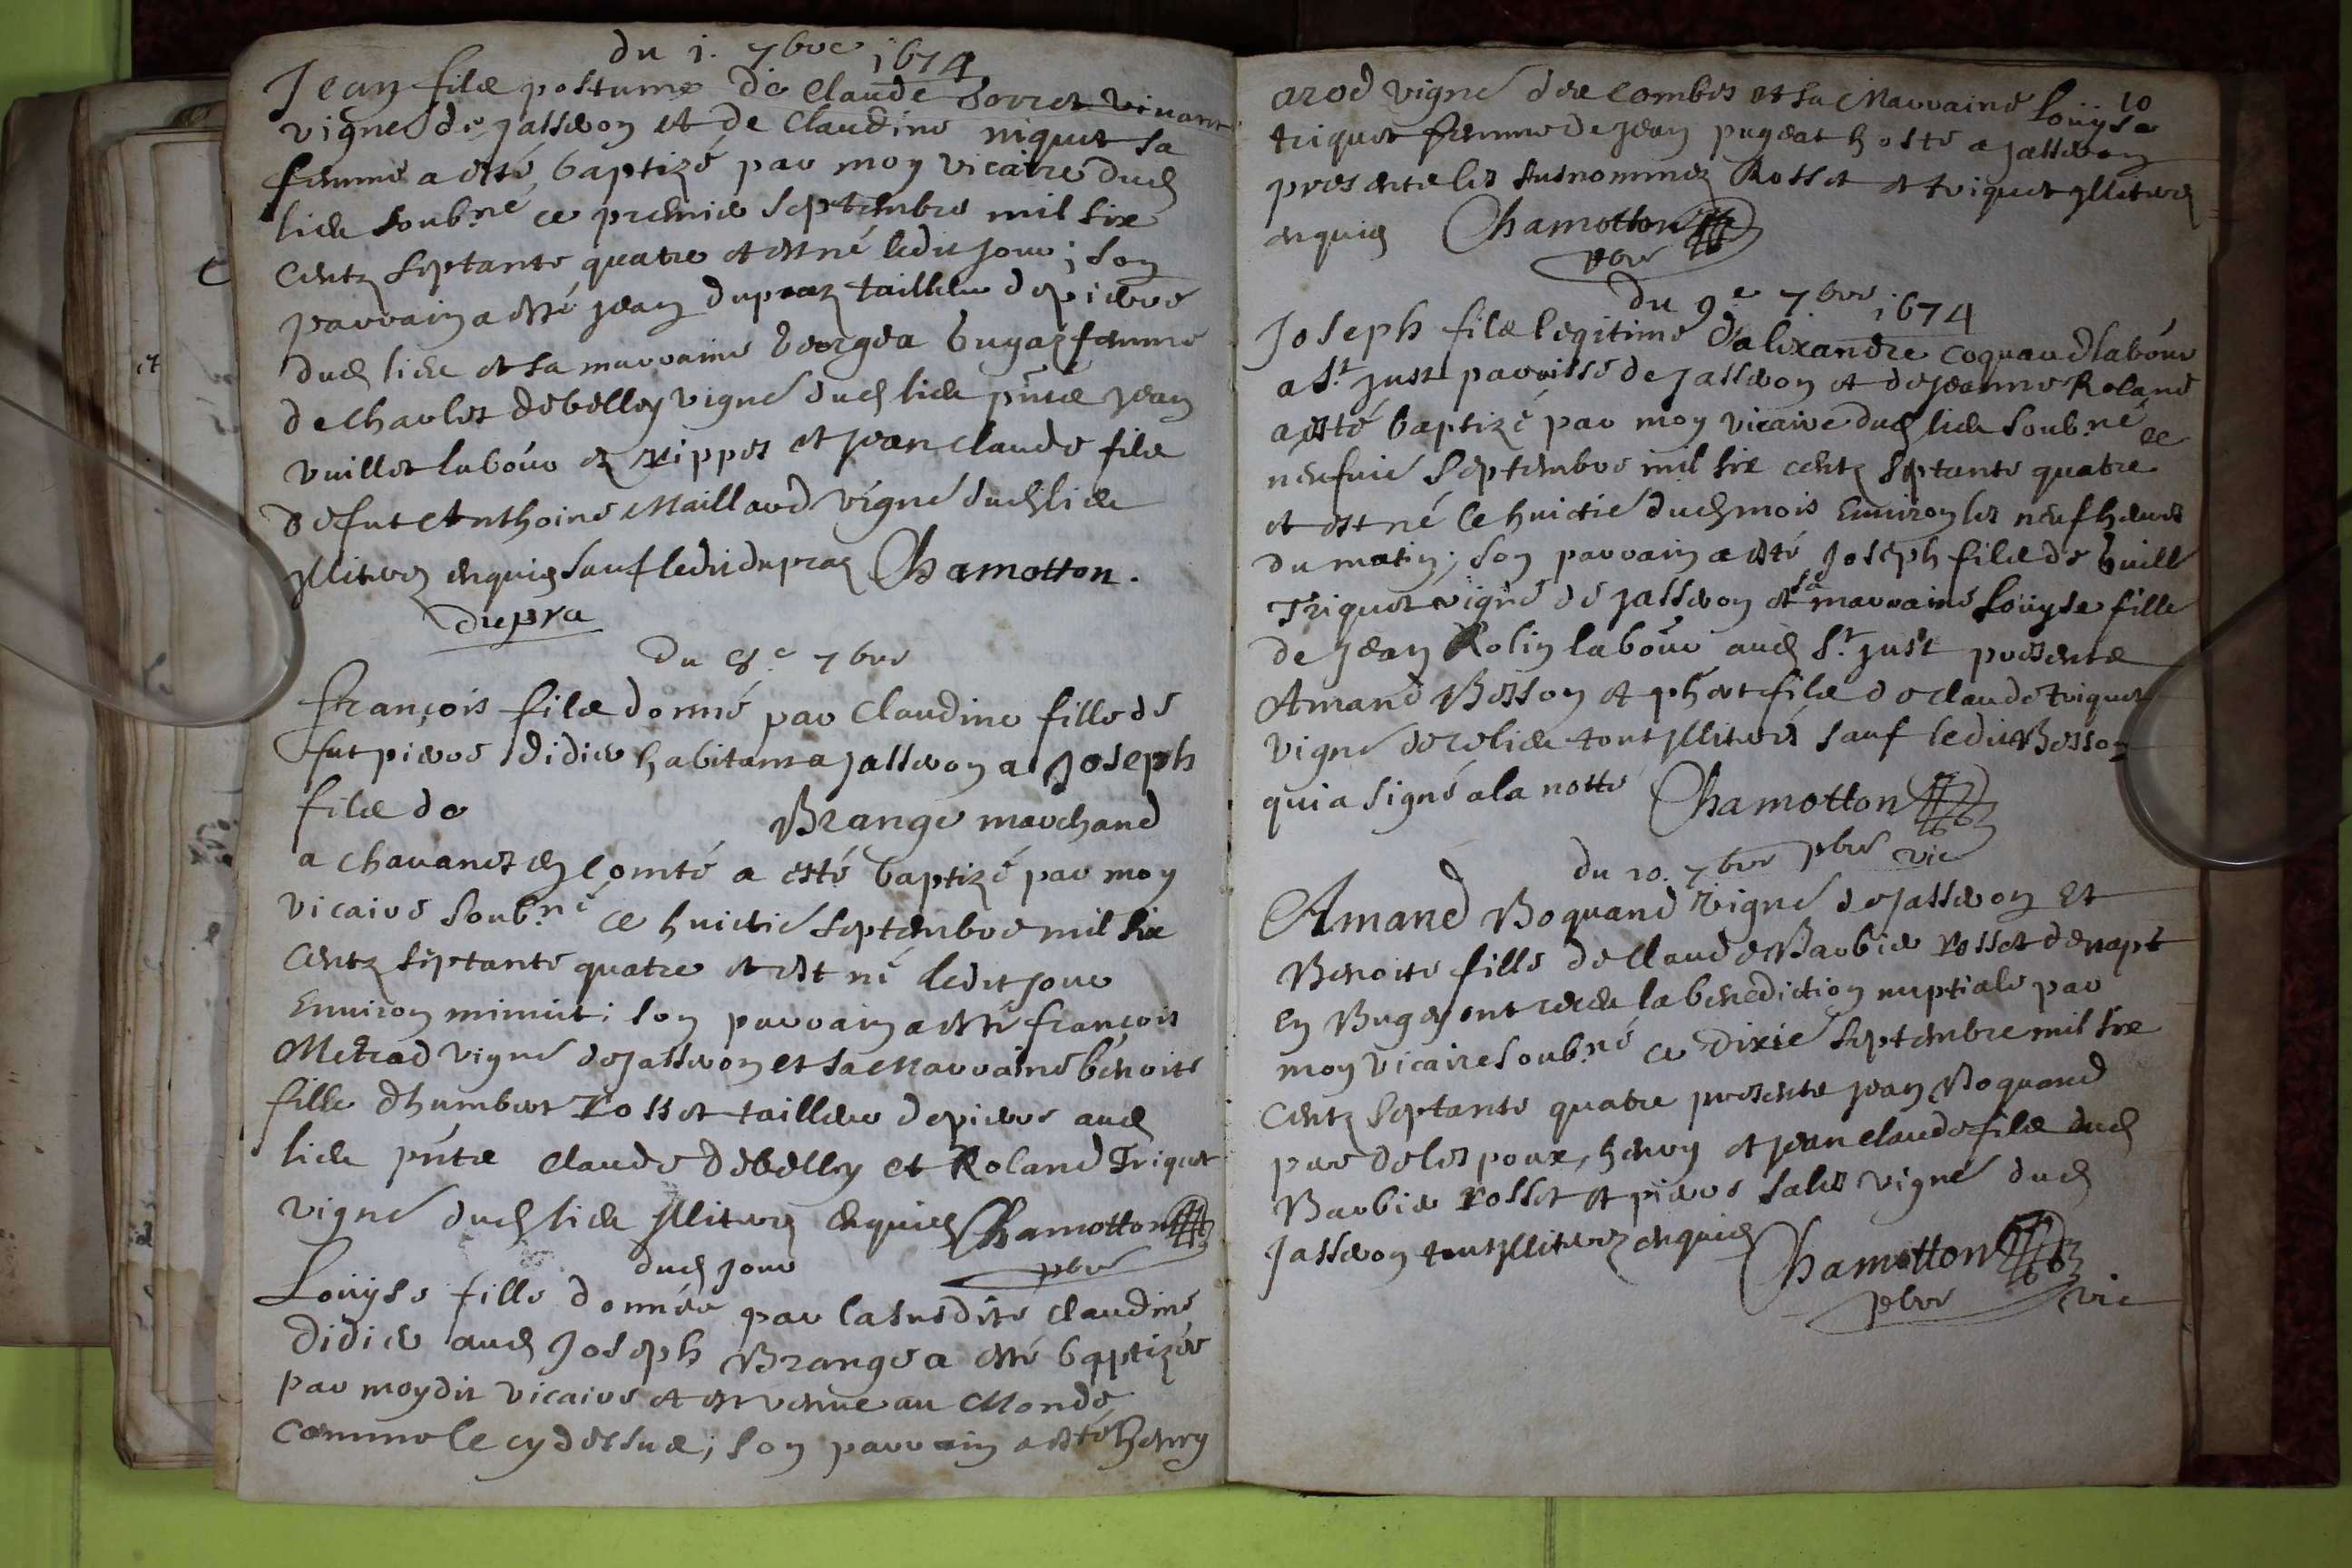 du 1. 7bre 1674
Jean filz postume de Claude Sorret vivant
vigne de Jasseron et de Claudine niquet sa
femme a esté baptizé par moy vicaire dud
lieu soub.né ce premier septembre mil six
centz septante quatre et est né ledit jour ; son
parrain a esté Jean dupraz tailleur de pierre
dud lieu et sa marraine Georgea bugaz femme
de Charles debelley vigne dud lieu pnte Jean
vuillet labour ez rippes et Jean Claude filz
de fut Anthoine Maillard vigne dud lieu
Illiterez enquis sauf ledit dupraz Chamotton.
Dupra
Du 8e 7bre
François filz donné par Claudine fille de
fut pierre didier habitant a Jasseron a Joseph
filz de Brange marchand
a chavanes en Comté a esté baptizé par moy
vicaire soub.né ce huictie septembre mil six
centz septante quatre et est né ledit jour
Environ minuit ; son parrain a esté françois
Metrad vigne de Jasseron et sa Marraine benoite
fille dhumbert rosset tailleur de pierre aud
lieu pnte Claude debelley et Roland Triquet
vigne dud lieu Illiterez enquis Chamotton
pbre
dud jour
Louyse fille donnée par la susdite Claudine
didier aud Joseph Brange a esté baptizée
par moydit vicaire et est venue au Monde
comme le cy dessus ; son parrain a esté henry
10
arod vigne des combes et sa Marraine Louyse
triquet femme de Jean pugeat hoste a Jasseron
presente les susnommez Rosset et triquet Illiterez
enquis Chamotton
pbre
du 9.e 7bre 1674
Joseph filz legitime d'alixandre coquand labour
a St Just parroisse de Jasseron et de Jeanne Roland
a esté baptizé par moy vicaire dud lieu soub.né ce
neufvie septembre mil six centz septante quatre
et est né le huictie dud mois Environ les neuf heures
du matin ; son parrain a esté Joseph filz de Guill
Triquet vigne de Jasseron et sa marraine Louyse fille
de Jean Rolin labour aud St Just presente
Amand Besson et phert filz de claude triquet
vigne de ce lieu tout Illiterés sauf ledit Besson
qui a signé a la notte Chamotton
pbre vic
du 10. 7bre
Amand Boquand vigne de Jasseron Et
Benoite fille de Claude Barbier rosset de napt
En Bugey ont receu la benediction nuptiale par
moy vicaire soub.né ce dixie septembre mil six
centz septante quatre presente Jean Boquand
pere de lespoux, henry et Jean Claude filz dud
Barbier rosset et pierre sales vigne dud
Jasseron tous Illiterez enquis Chamotton
pbre vic